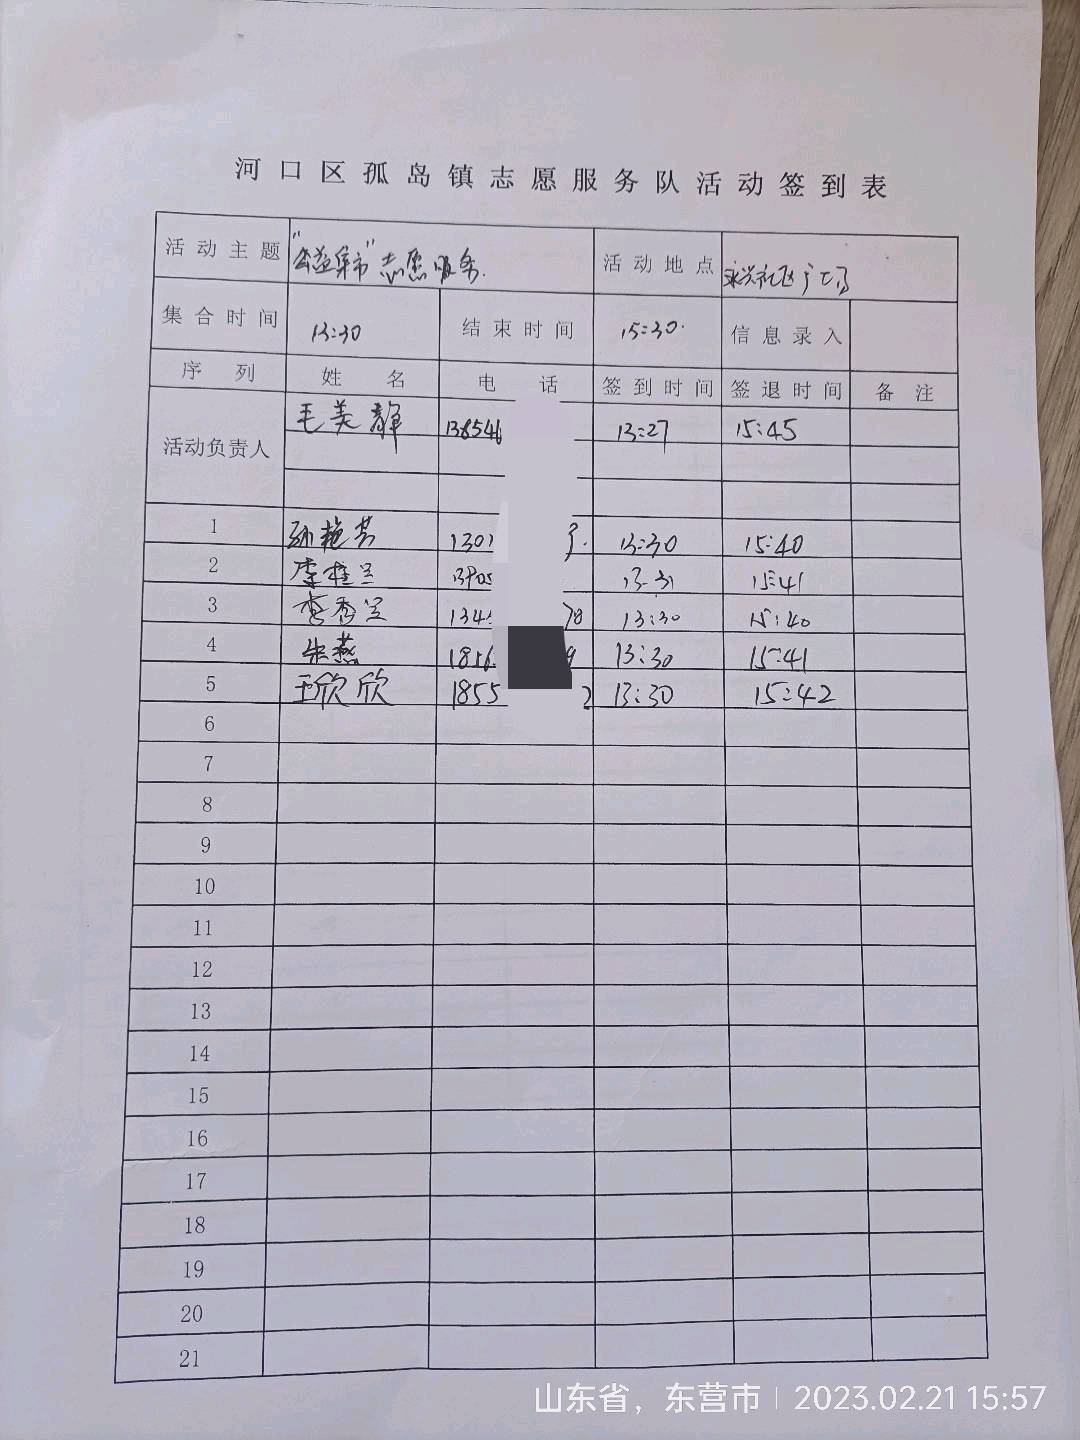 河口区孤岛镇志愿服务队活动签到表
活动主题 "公益集市"志愿服务. 活动地点 永兴社区广场
集合时间 13:30 结束时间 15:30. 信息录入
序列 姓名 电话 签到时间 签退时间 备注
活动负责人 毛美静 138546 13:27 15:45
1 孙艳芳 1301 3. 13:30 15:40
2 李桂兰 13905 13:31 15:41
3 李秀兰 1345 78 13:30 15:40
4 朱燕 1856 9 13:30 15:41
5 王欣欣 1855 2 13:30 15:42
6
7
8
9
10
11
12
13
14
15
16
17
18
19
20
21
山东省，东营市 | 2023.02.21 15:57